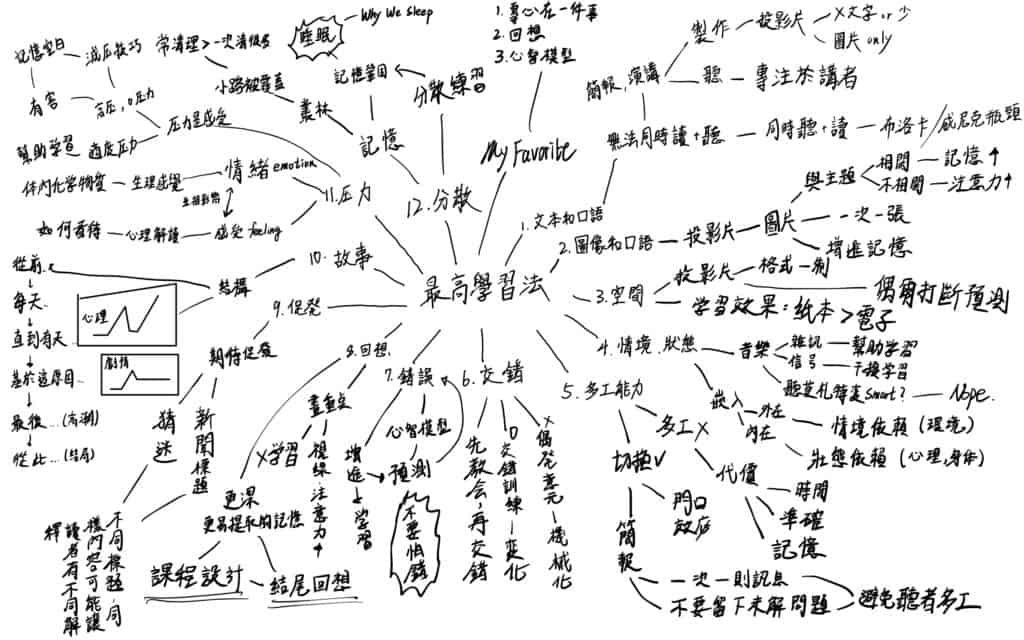 最高學習法
My Favorite
1. 專心在一件事
2. 回想
3. 心智模型
1. 文本和口語
簡報,演講
製作 - 投影片
X文字 or 少
圖片 only
聽 - 專注於講者
無法同時讀+聽 - 同時聽+讀 - 布洛卡/威尼克瓶頸
2. 圖像和口語 - 投影片 - 圖片
與主題
相關 - 記憶↑
不相關 - 注意力↑
一次一張
增進記憶
3. 空間
投影片 - 格式一制
偶爾打斷預測
學習效果:紙本 > 電子
4. 情境、狀態
音樂
雜訊 - 幫助學習
信号 - 干擾學習
聽莫札特變Smart? - Nope.
嵌入
外在
內在
情境依賴(環境)
狀態依賴(心理,身体)
5. 多工能力
多工X
代價
時間
準確
記憶
切換✓
門口效应
簡報
一次一則訊息
不要留下未解問題
避免聽者多工
6. 交錯
X偶發意元-機械化
O交錯訓練-變化
先教会,再交錯
7. 錯誤
心智模型
預測
增進→學習
不要怕錯
8. 回想
畫重点
X學習
視線、注意力↑
更深
更易提取的記憶
課程設計
結尾回想
9. 促發
期待促發
猜迷
新聞標題
不同標題,同
樣內容可能讓
讀者有不同解
釋
10. 故事
結構
心理
劇情
從前..
每天..
直到有天..
基於這原因..
最後...(高潮)
從此...(結局)
11. 压力
压力是感受
高压, 0压力
減压技巧
記憶空白
有害
適度压力
幫助學習
情緒emotion
生理感覺
体內化学物質
互相影響
感受 feeling
心理解讀
如何看待
12. 分散
分散練習
記憶鞏固
睡眠
Why We Sleep
記憶
叢林
小路被覆蓋
常清理>一次清很多